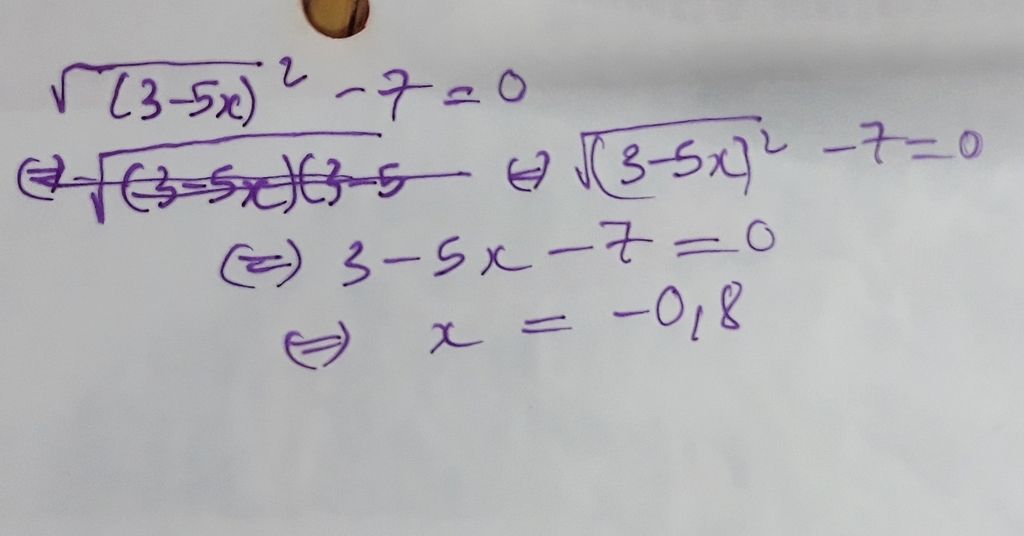 √(3-5x)² - 7 = 0
⇔ √(3-5x)(3-5 ⇔ √(3-5x)² - 7 = 0
⇔ 3 - 5x - 7 = 0
⇔ x = -0,8